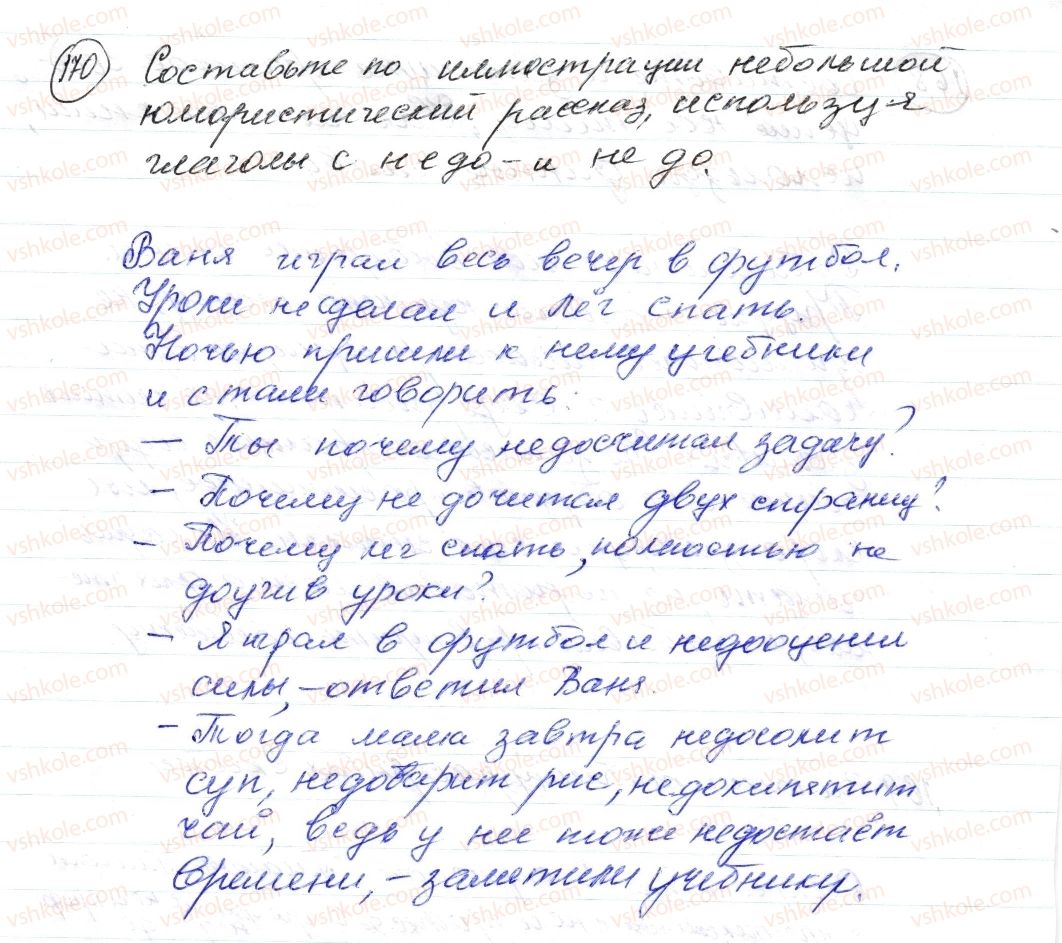 170 Составьте по иллюстрации небольшой
юмористический рассказ, используя
глаголы с недо- и не до.
Ваня играл весь вечер в футбол.
Уроки не сделал и лёг спать.
Ночью пришли к нему учебники
и стали говорить:
— Ты почему недосчитал задачу?
— Почему не дочитал двух страниц?
— Почему лег спать, полностью не
доучив уроки?
— Я играл в футбол и недооценил
силы, – ответил Ваня.
— Тогда мама завтра недосолит
суп, недоварит рис, недокипятит
чай, ведь у нее тоже недостаёт
времени, – заметили учебники.